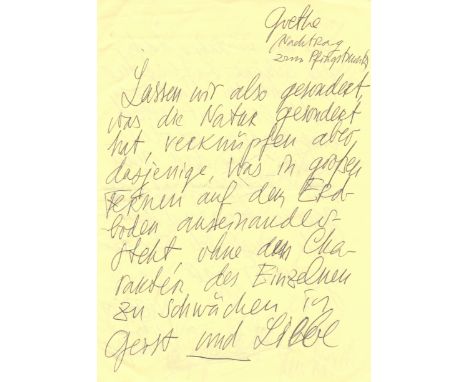 Goethe
Nachtrag
zum Pfingst
Lassen wir also gesondert
was die Natur gesondert
hat, verknüpfen aber
dasjenige, was in großen
Fernen auf dem Erd
boden auseinander-
steht ohne den Cha-
rakter des Einzelnen
zu schwächen in
Geist und Liebe